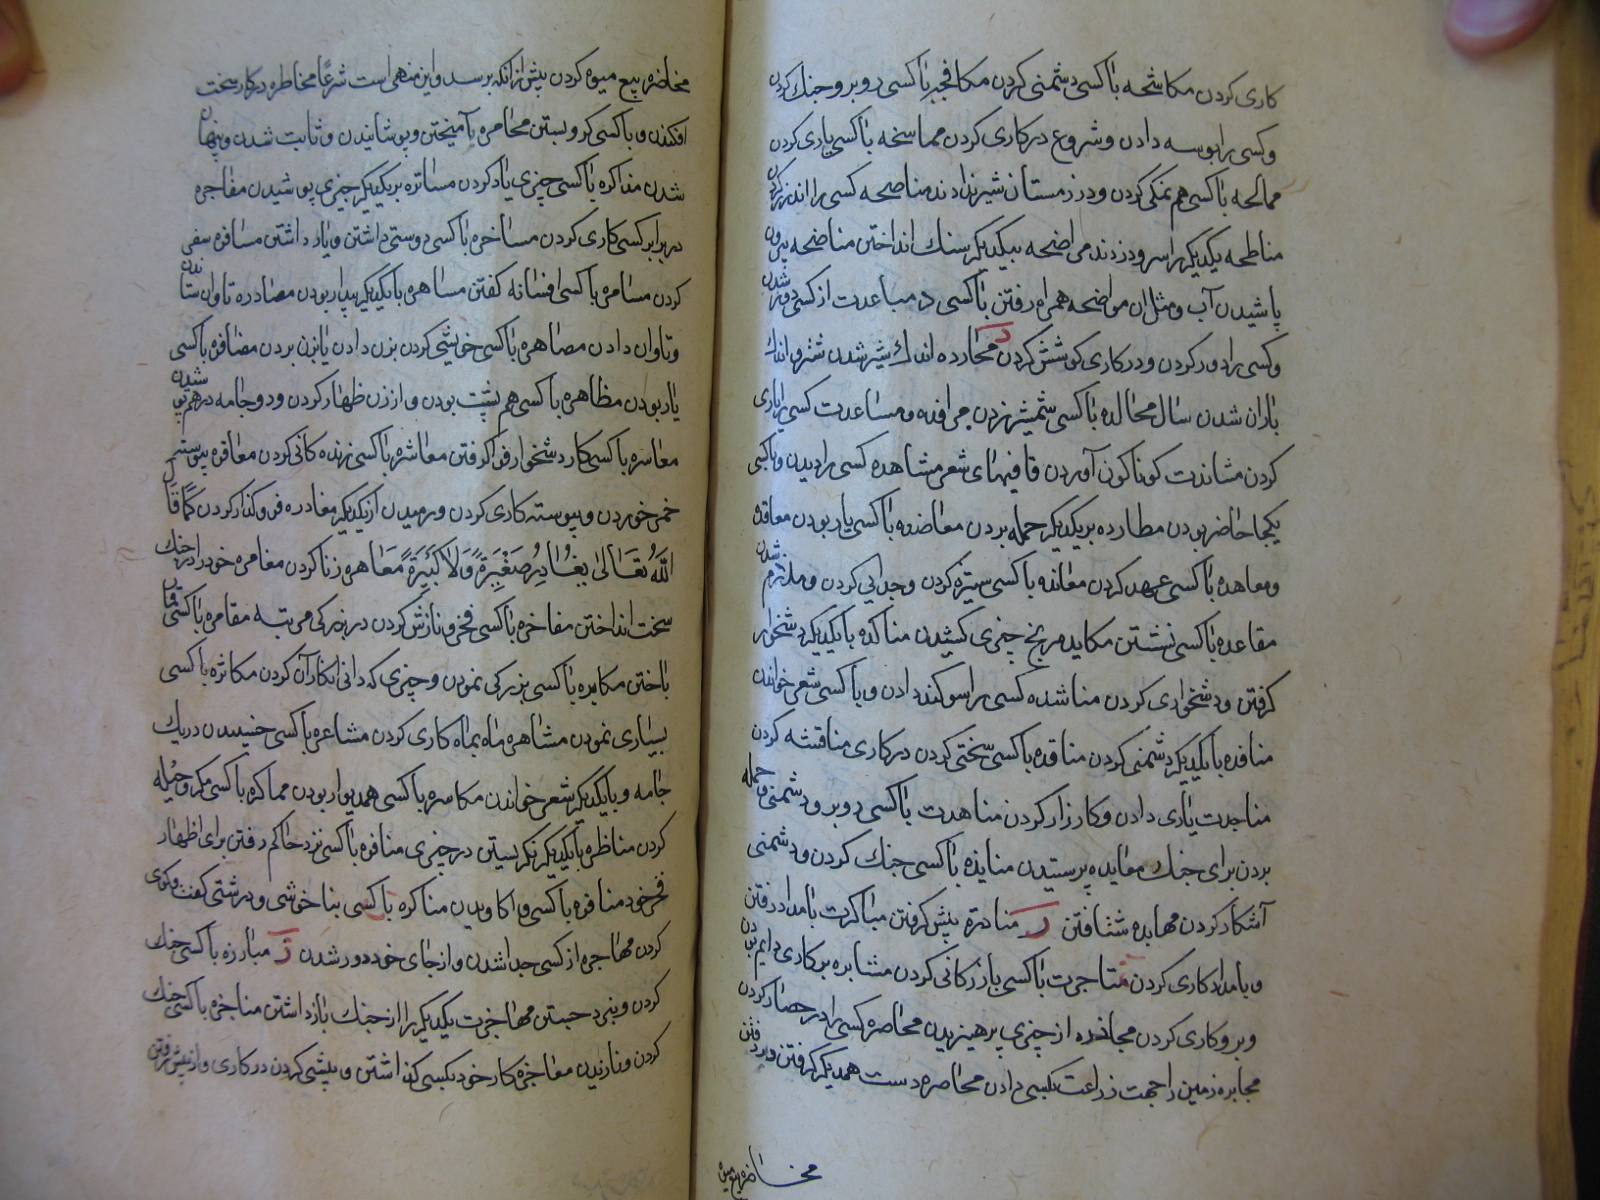 کاری کردن مکاشحه باکسی دشمنی کردن مکافحه باکسی روبرو جنك کردن
وکسی رابوسه دادن وشروع درکاری کردن مماسخه باکسی یاری کردن
ممالحه باکسی هم نمکی کردن ودر زمستان شیر ندادند مناصحه کسی را اندرز کردن
مناطحه یکدیکر را سرو زدند مراضحه بیکدیکر سنك انداختن مناضحه بیرون
پاشیدن آب ومثل ان مواضحه همراه رفتن باکسی د مباعدت از کسی دور شدن
وکسی رادور کردن ودرکاری کوشش کردن محارده اندك شیر شدن شتر واندك
باران شدن سال مجالده باکسی شمشیر زدن مرافده ومساعدت کسی را یاری
کردن مشاندت کوناکون آوردن قافیتهای شعر مشاهده کسی رادیدن وباکسی
یکجا حاضر بودن مطارده بریکدیکر حمله بردن معاضده باکسی یار بودن معاقده
ومعاهده باکسی عهد کردن معانده باکسی ستیزه کردن وجدایی کردن وملازم شدن
مقاعده باکسی نشستن مکایده رنج چیزی کشیدن مناکده بایکدیکر دشخوار
کرفتن ودشخواری کردن مناشده کسی راسوکند دادن وباکسی شعر خواندن
منافده بایکدیکر دشمنی کردن مناقده باکسی سختی کردن درکاری مناقشه کردن
مناجدت یاری دادن وکارزار کردن مناهدت باکسی روبرو دشمنی وحمله
بردن برای جنك معابده پرستیدن منابذه باکسی جنك کردن ودشمنی
آشکار کردن مهابده شتافتن ر مبادرة پیش کرفتن مباکرت بامداد رفتن
وبامداد کاری کردن متاجرت باکسی بازرکانی کردن مثابره برکاری دایم بودن
وبروکاری کردن مجانده از چیزی پرهیزیدن محاصره کسی رادر حصار کردن
مجابره زمین راجهت زراعت بکسی دادن مخاصره دست همدیکر کرفتن وبرد رفتن
مخاضره بیع میوه
مخاضره بیع میوه کردن پیش از انکه برسد واین منهی است شرعًا مخاطره درکار سخت
افکندن وباکسی کرو بستن مخامره بآمیختن وپوشانیدن وثابت شدن وپنهان
شدن مذاکره باکسی چیزی یاد کردن مساتره بریکدیکر چیزی پوشیدن مفاجره
دربرابر کسی کاری کردن مساخره باکسی دوستی داشتن ویار داشتن مسافره سفر
کردن مسامره باکسی افسانه کفتن مساهره بایکدیکر بیدار بودن مصادره تاوان ستاندن
وتاوان دادن مصاهره باکسی خویشی کردن بزن دادن یابزن بردن مضافره باکسی
یار بودن مظاهره باکسی هم پشت بودن واز زن ظهار کردن ودو جامه درهم پوشیدن
معاسره باکسی کار دشخوار فرا کرفتن معاشره باکسی زنده کانی کردن معاقره پیوسته
خمر خوردن وپیوسته کاری کردن ورمیدن ازیکدیکر مغادره فروکذار کردن کما قال
الله تعالی یغادر صغیرة ولا کبیرة معاهره زنا کردن مغامره خود را درجنك
سخت انداختن مفاخره باکسی فخر ونازش کردن دربزرکی مرتبه مقامره باکسی قمار
باختن مکابره باکسی بزرکی نمودن وچیزی که دانی انکار آن کردن مکاثره باکسی
بسیاری نمودن مشاهره ماه بماه کاری کردن مشاعره باکسی خسبیدن دریك
جامه وبایکدیکر شعر خواندن مکاسره باکسی همدیوار بودن مماکره باکسی مکر وحیله
کردن مناظره بایکدیکر نکریستن درچیزی منافره باکسی نزد حاکم رفتن برای اظهار
فخر خود مناقره باکسی واکاویدن مناکره باکسی بناخوشی ودرشتی کفت وکوی
کردن مهاجره از کسی جدا شدن واز جای خود دور شدن ز مبارزه باکسی جنك
کردن ونبرد جستن مهاجزت یکدیکر را از جنك بازداشتن مناجزه باکسی جنك
کردن ونازیدن معاجزه کار خود بکسی کذاشتن وپیشی کردن درکاری واز پیش رفتن